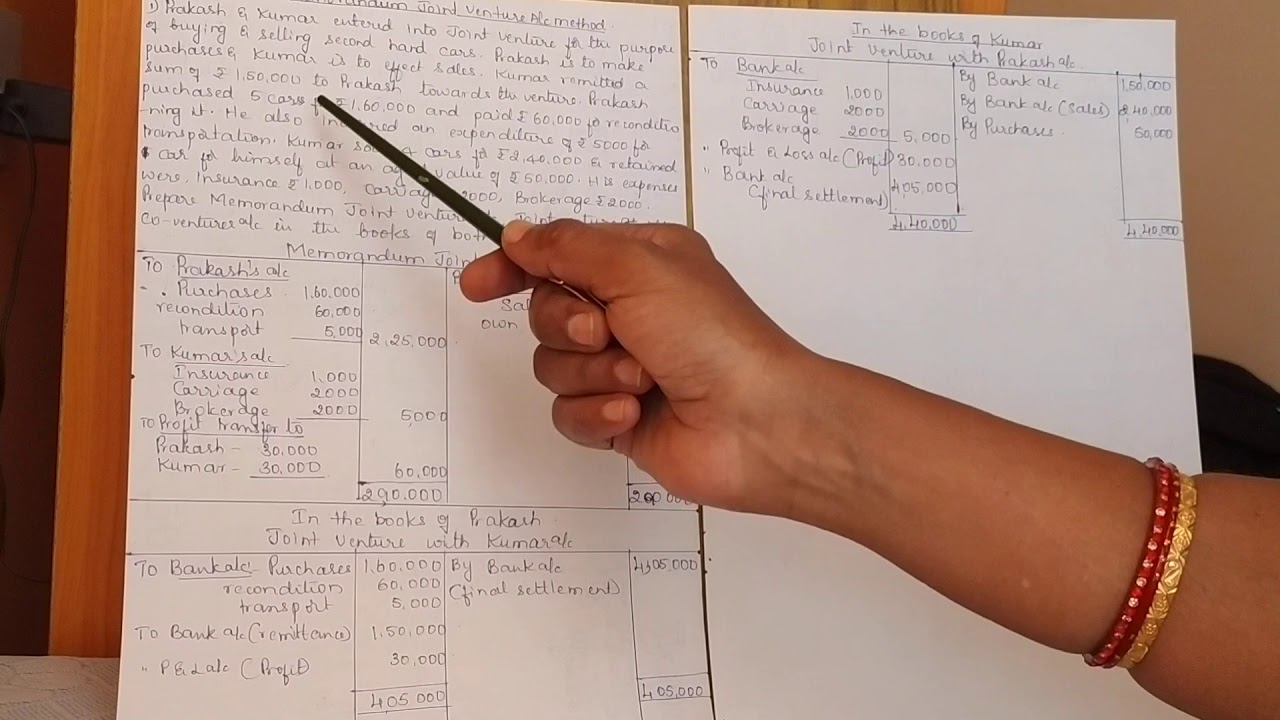 Memorandum Joint Venture A/c method.
1) Prakash & Kumar entered into Joint venture for the purpose
of buying & selling second hand cars. Prakash is to make
purchases & Kumar is to effect sales. Kumar remitted a
sum of ₹ 1,50,000 to Prakash towards the venture. Prakash
purchased 5 cars ₹ 1,60,000 and paid ₹ 60,000 for reconditio
-ning it. He also incurred an expenditure of ₹ 5000 for
transportation. Kumar cars for ₹ 2,40,000 & retained
1 car for himself at an value of ₹ 50,000. His expenses
were, Insurance ₹ 1,000, Carriage 2000, Brokerage ₹ 2000.
Prepare Memorandum Joint Venture
Co-venturer a/c in the books of both
Memorandum Joint
To Prakash's a/c
Purchases 1,60,000
recondition 60,000
transport 5,000 2,25,000
own
To Kumar's a/c
Insurance 1,000
Carriage 2000
Brokerage 2000 5,000
To Profit transfer to
Prakash - 30,000
Kumar - 30,000 60,000
290,000
In the books of Prakash
Joint Venture with Kumar a/c
To Bank a/c:- Purchases 1,60,000 By Bank a/c 4,05,000
recondition 60,000 (final settlement)
transport 5,000
To Bank a/c (remittance) 1,50,000
" P & L a/c (Profit) 30,000
405,000 405,000
In the books of Kumar
Joint Venture with Prakash a/c.
To Bank a/c By Bank a/c 1,50,000
Insurance 1,000 By Bank a/c (Sales) 240,000
Carriage 2000 By Purchases. 50,000
Brokerage 2000 5,000
" Profit & Loss a/c (Profit) 30,000
" Bank a/c 405,000
(final settlement)
4,40,000 4,40,000